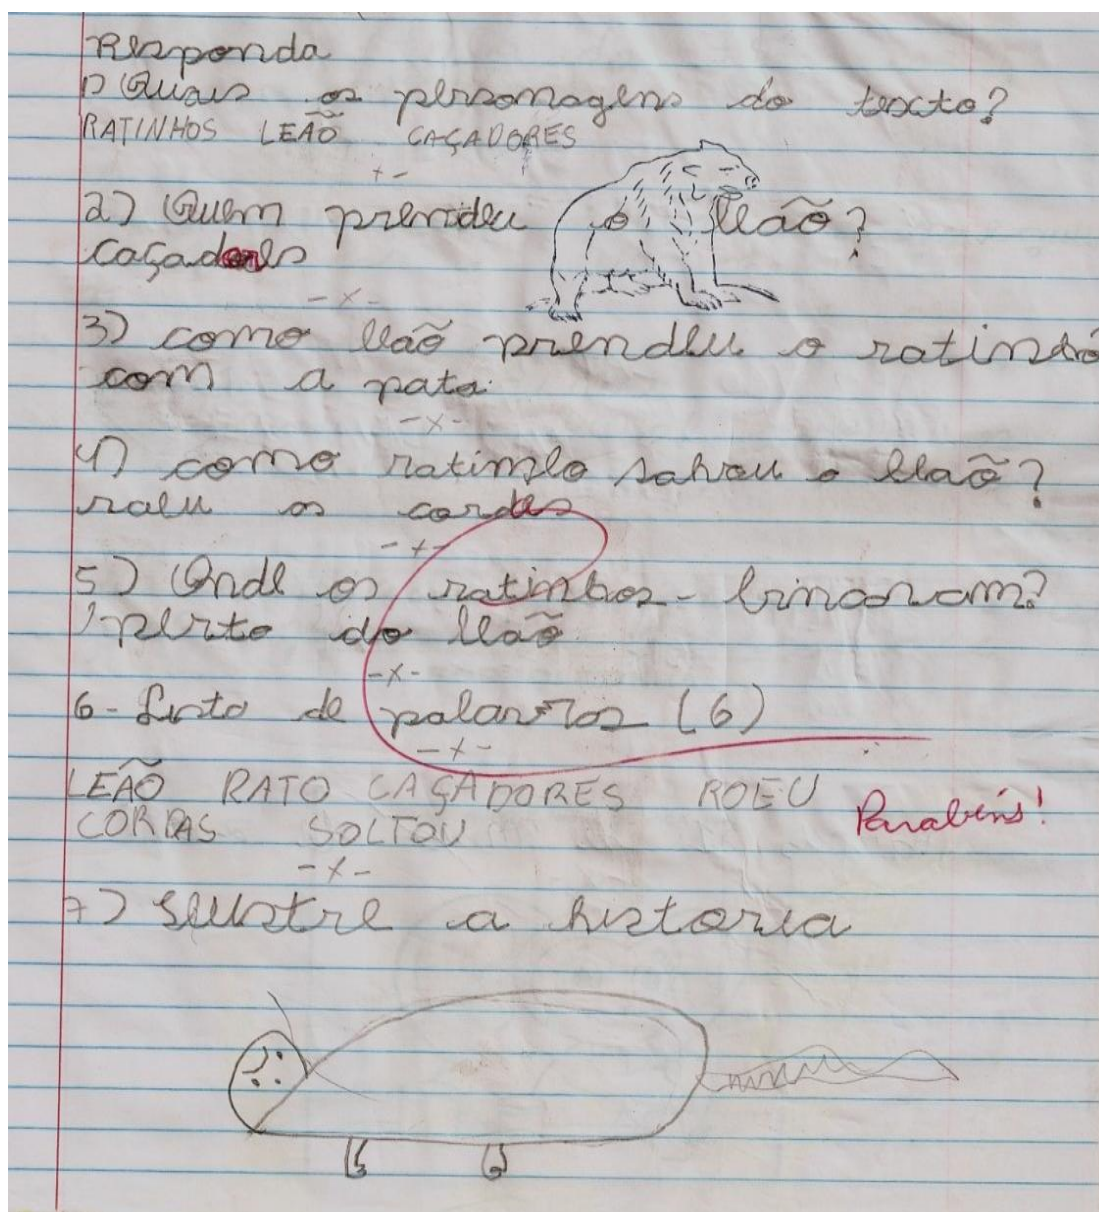 Responda
1) Quais os personagens do texto?
RATINHOS LEÃO CAÇADORES
2) Quem prendeu o leão?
caçadores
3) como leão prendeu o ratinho
com a pata
4) como ratinho salvou o leão?
raeu os cordas
5) Onde os ratinhos - brincavam?
perto do leão
6- Lista de palavras (6)
LEÃO RATO CAÇADORES ROEU
CORDAS SOLTOU
Parabéns!
7) Ilustre a historia